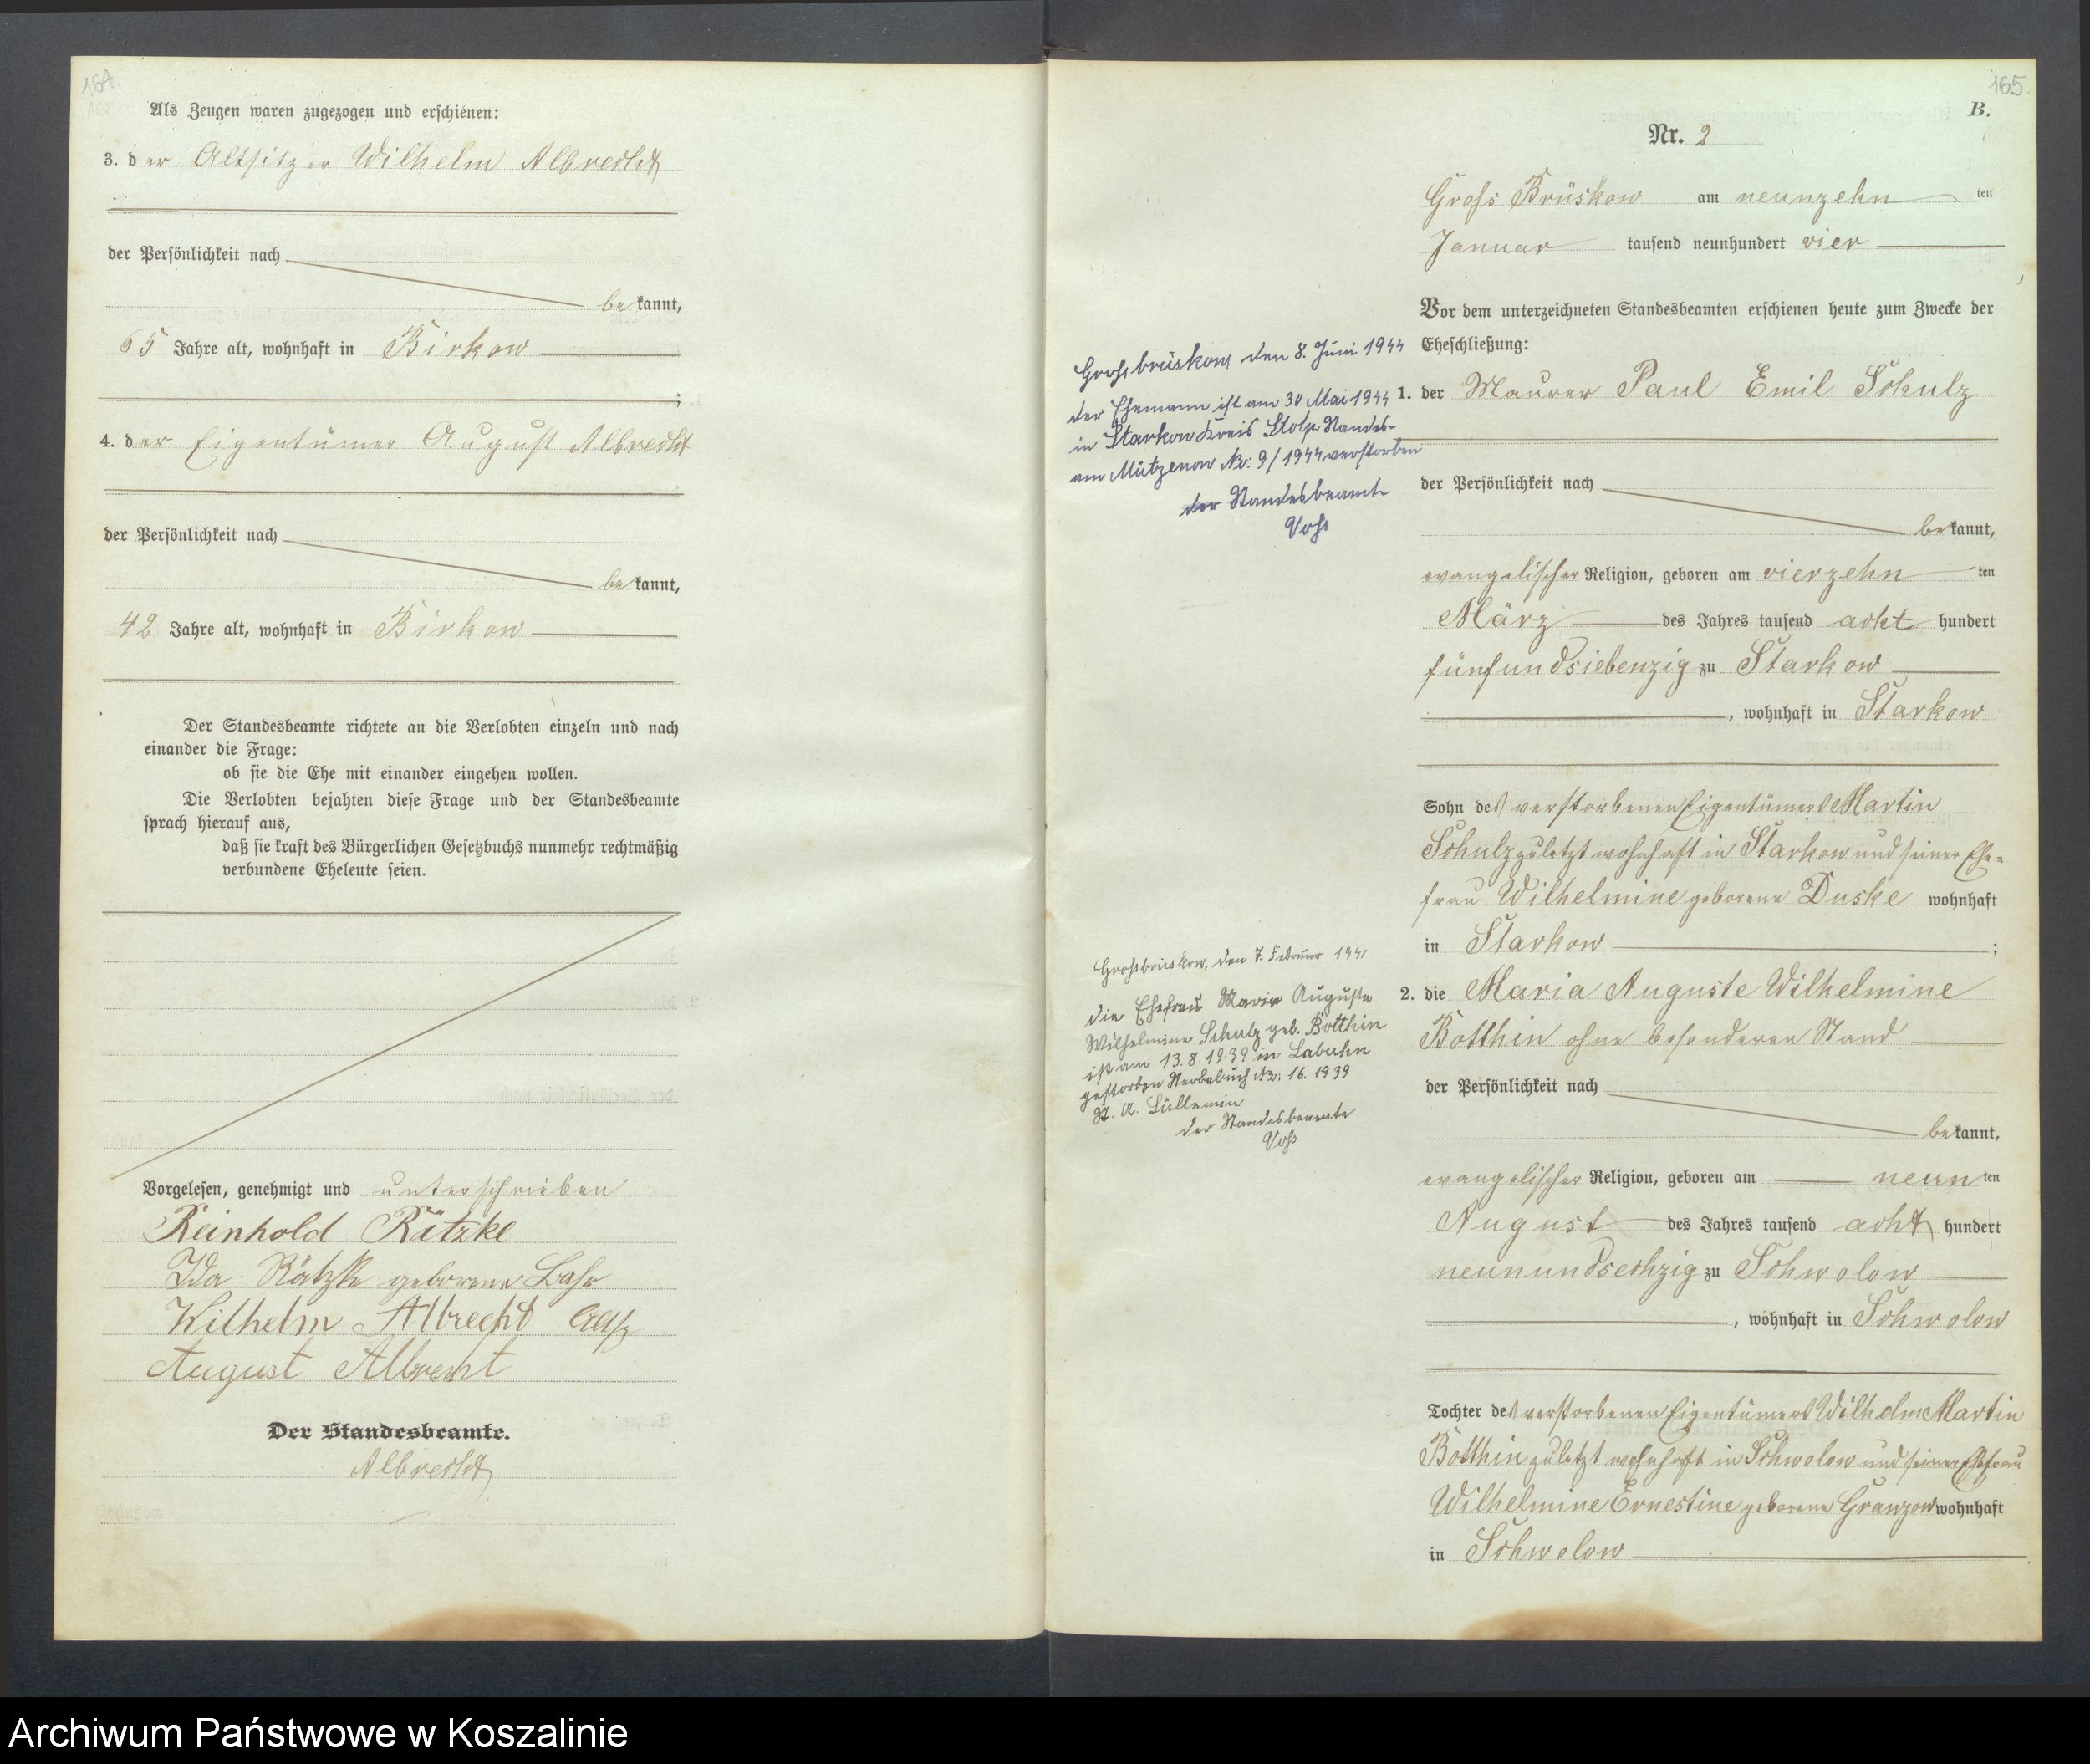 164.
Als Zeugen waren zugezogen und erschienen:
3. der Altsitzer Wilhelm Albrecht
der Persönlichkeit nach
bekannt,
65 Jahre alt, wohnhaft in Birkow
;
4. der Eigentümer August Albrecht
der Persönlichkeit nach
bekannt,
42 Jahre alt, wohnhaft in Birkow
Der Standesbeamte richtete an die Verlobten einzeln und nach
einander die Frage:
ob sie die Ehe mit einander eingehen wollen.
Die Verlobten bejahten diese Frage und der Standesbeamte
sprach hierauf aus,
daß sie kraft des Bürgerlichen Gesetzbuchs nunmehr rechtmäßig
verbundene Eheleute seien.
Vorgelesen, genehmigt und unterschrieben
Reinhold Rätzke
Ida Rätzke geborene
Wilhelm Albrecht
August Albrecht
Der Standesbeamte.
Albrecht
165
B.
Nr. 2
Gross Brüskow am neunzehn ten
Januar tausend neunhundert vier
Vor dem unterzeichneten Standesbeamten erschienen heute zum Zwecke der
Eheschließung:
1. der Maurer Paul Emil Schulz
der Persönlichkeit nach
bekannt,
evangelischer Religion, geboren am vierzehn ten
März des Jahres tausend acht hundert
fünfundsiebenzig zu Starkow
, wohnhaft in Starkow
Sohn des verstorbenen Eigentümers Martin
Schulz zuletzt wohnhaft in Starkow und seiner Ehe=
frau Wilhelmine geborene Duske wohnhaft
in Starkow ;
2. die Maria Auguste Wilhelmine
Botthin ohne besonderen Stand
der Persönlichkeit nach
bekannt,
evangelischer Religion, geboren am neun ten
August des Jahres tausend acht hundert
neunundsechzig zu Schwolow
, wohnhaft in Schwolow
Tochter des verstorbenen Eigentümers Wilhelm Martin
Botthin zuletzt wohnhaft in Schwolow und seiner Ehefrau
Wilhelmine Ernestine geborene Granzow wohnhaft
in Schwolow
Grossbrüskow, den 8. Juni 1944
der Ehemann ist am 30 Mai 1944
in Starkow Kreis Stolp Standes-
amt Mützenow Nr: 9/1944 verstorben
der Standesbeamte
Voss
Grossbrüskow, den 7. Februar 1941
die Ehefrau Marie Auguste
Wilhelmine Schulz geb. Botthin
ist am 13.8.1939 in Labuhn
gestorben Sterbebuch Nr: 16. 1939
St. A. Lüllemin
der Standesbeamte
Voss
Archiwum Państwowe w Koszalinie